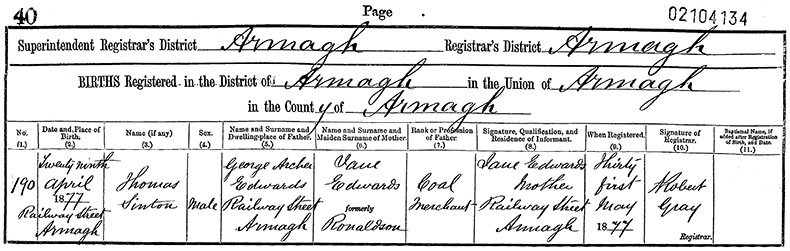 40 Page 02104134
Superintendent Registrar's District Armagh Registrar's District Armagh
BIRTHS Registered in the District of Armagh in the Union of Armagh
in the County of Armagh
No. (1.)
Date and Place of Birth. (2.)
Name (if any) (3.)
Sex. (4.)
Name and Surname and Dwelling-place of Father. (5.)
Name and Surname and Maiden Surname of Mother. (6.)
Rank or Profession of Father. (7.)
Signature, Qualification, and Residence of Informant. (8.)
When Registered. (9.)
Signature of Registrar. (10.)
Baptismal Name, if added after Registration of Birth, and Date. (11.)
190
Twenty ninth
April
1877
Railway Street
Armagh
Thomas
Sinton
Male
George Archer
Edwards
Railway Street
Armagh
Jane
Edwards
formerly
Ronaldson
Coal
Merchant
Jane Edwards
Mother
Railway Street
Armagh
Thirty
first
May
1877
Robert
Gray
Registrar.